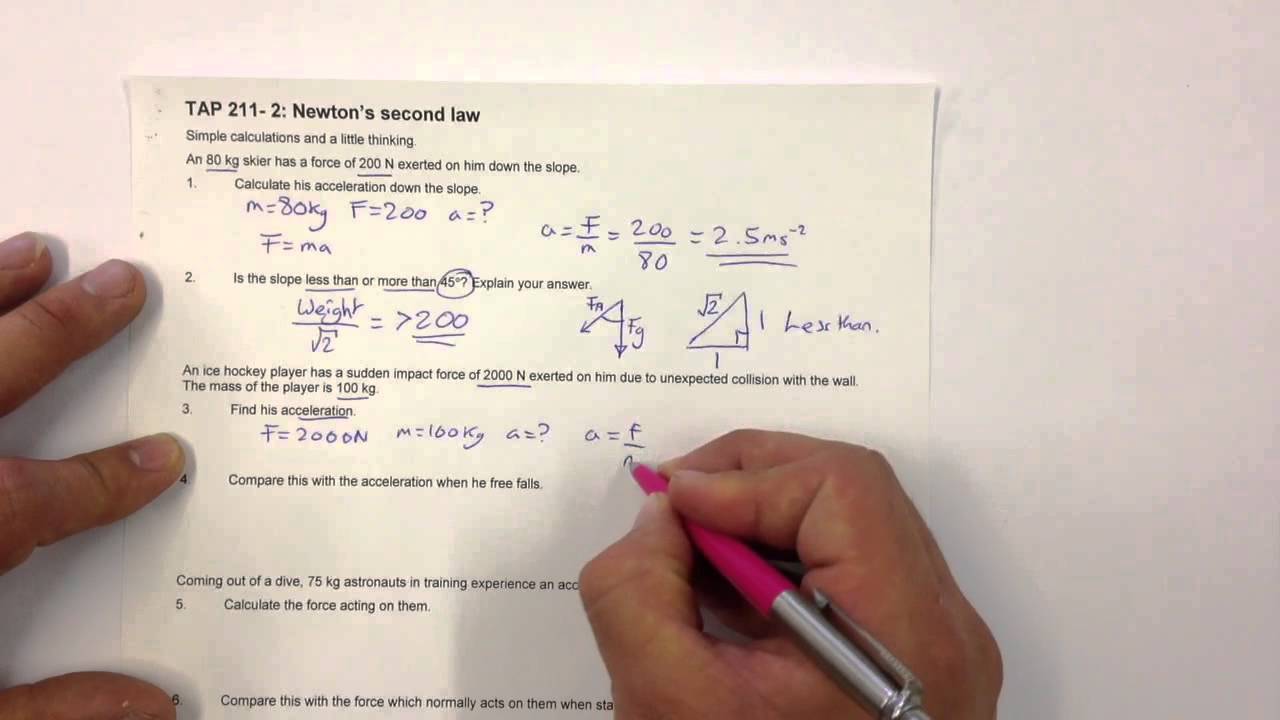 TAP 211- 2: Newton's second law
Simple calculations and a little thinking.
An 80 kg skier has a force of 200 N exerted on him down the slope.
1. Calculate his acceleration down the slope.
m=80kg F=200 a=?
F=ma
a = F/m = 200/80 = 2.5ms⁻²
2. Is the slope less than or more than 45°? Explain your answer.
Weight/√2 = >200
FA
Fg
√2
1
1
Less than.
An ice hockey player has a sudden impact force of 2000 N exerted on him due to unexpected collision with the wall.
The mass of the player is 100 kg.
3. Find his acceleration.
F=2000N m=100kg a=? a=F/
4. Compare this with the acceleration when he free falls.
Coming out of a dive, 75 kg astronauts in training experience an
5. Calculate the force acting on them.
6. Compare this with the force which normally acts on them when